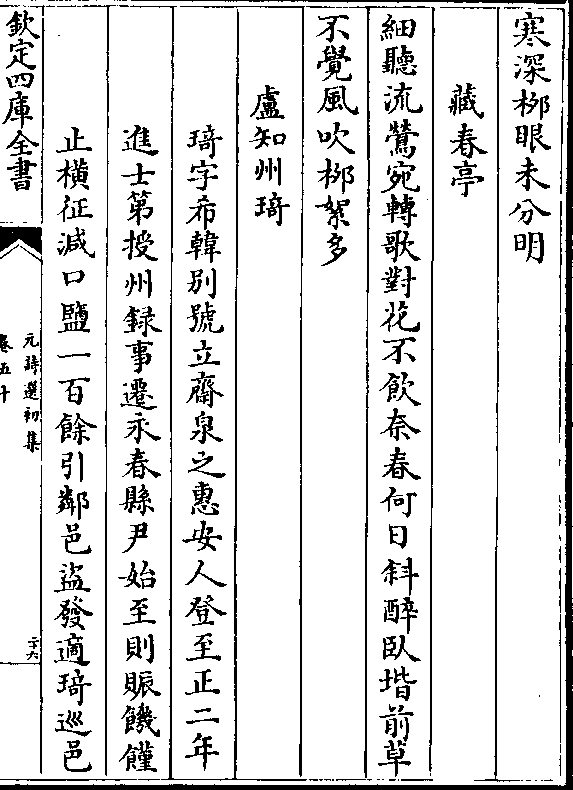 寒深栁眼未分明
藏春亭
細聽流鶯宛轉歌對花不飲奈春何日斜醉臥堦前草
不覺風吹栁絮多
盧知州琦
琦字希韓别號立齋泉之惠安人登至正二年
進士第授州録事遷永春縣尹始至則賑饑饉
止橫征減口鹽一百餘引鄰邑盜發適琦巡邑
欽定四庫全書
元詩選初集
卷五十
二十六